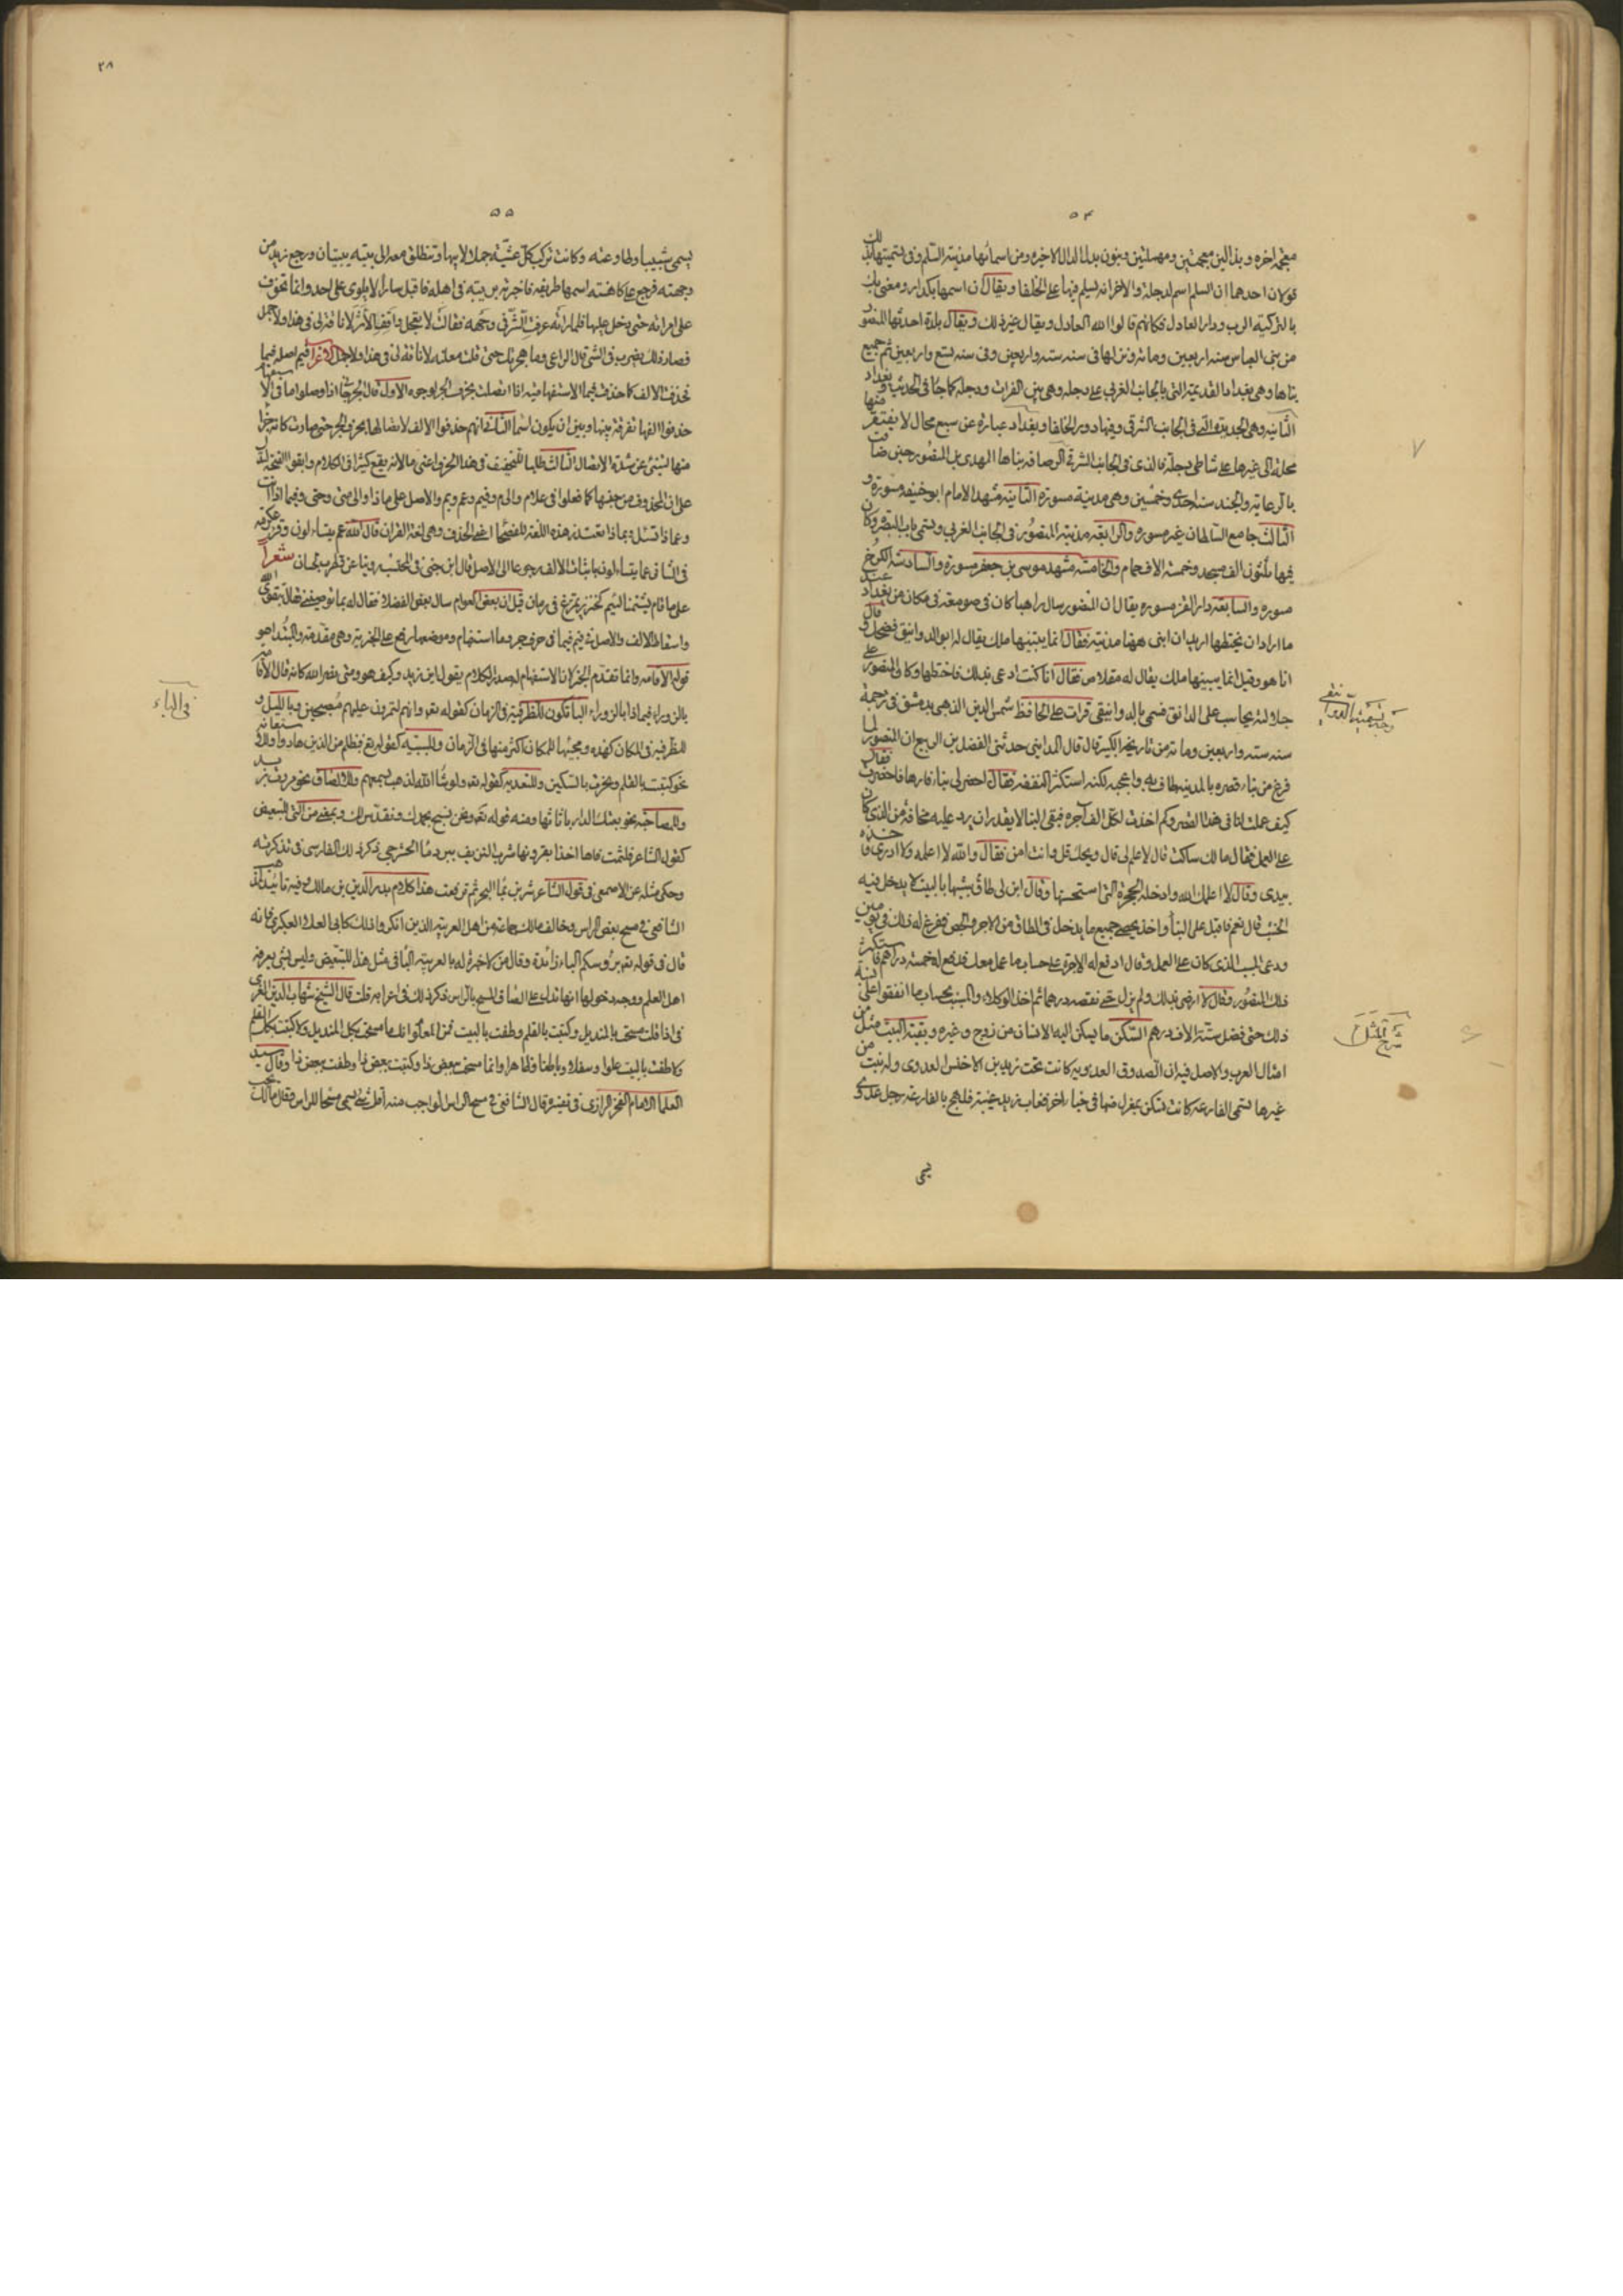 ٥٤
معجمة اخره وبذالين معجمتين ومهملتين وبنون بدل الدال الاخيره ومن اسمائها مدينة السلم وفى تسميتها بذلك
قولان احدهما ان السلم اسم لدجلة والاخر انه يسلم فيها على الخلفا ويقال ان اسمها بكدار ومعنى باك
بالتركية الرب ودار العادل فكانهم قالوا الله العادل ويقال غير ذلك ويقال بلدة احدثها المنصور
من بنى العباس سنه اربعين ومائه ونزلها فى سنه سته واربعين وفى سنه تسع واربعين تم جميع
بناها وهى بغداد القديمة التى بالجانب الغربى على دجله وهى بين الفرات ودجله كما جا فى الحديث وبغداد
الثانيه وهى الجديدة التى فى الجانب الشرقى وفيها دور الخلفا وبغداد عبارة عن سبع محال لا يفتقر منها
محلة الى غيرها على شاطى دجلة فالذى فى الجانب الشرقى الرصافه بناها المهدى بن المنصور حين ضاقت
بالرعايه والجند سنه احدى وخمسين وهى مدينة مسورة الثانيه مشهد الامام ابو حنيفه مسورة و
الثالث جامع السلطان غير مسوره والرابعه مدينة المنصور فى الجانب الغربى وتسمى باب البصره وكان
فيها ثلثون الف مسجد وخمسة الاف حمام والخامسة مشهد موسى بن جعفر مسورة والسادسة الكرخ
مسوره والسابعه دار القز مسوره يقال ان المنصور سال راهبا كان فى صومعته فى مكان من بغداد عند
ما اراد ان يختطها اريد ان ابنى ههنا مدينة فقال انما يبنيها ملك يقال له ابو الدوانيق فضحك وقال
انا هو وقيل انما يبنيها ملك يقال له مقلاص فقال انا كنت ادعى بذلك فاختطها وكان المنصور على
جلالته يحاسب على الدانق فسمى بالدوانيقى قرات على الحافظ شمس الدين الذهبى بدمشق فى ترجمة
سنه سته واربعين ومائه من تاريخه الكبير قال قال المداينى حدثنى الفضل بن الربيع ان المنصور لما
فرغ من بناء قصره بالمدينه طاف به واعجبه لكنه استكثر النفقه فقال احضر لى بناء فارها فاحضرت فقال
كيف عملت لنا فى هذا القصر وكم اخذت لكل الف آجره فبقى البنا لا يقدر ان يرد عليه مخافة من الذى كان
على العمل فقال مالك ساكت قال لا علم لى قال ويحك قل وانت امن فقال والله لا اعلمه ولا ادرى فاخذه
بيدى وقال لا اعلمك الله وادخله الحجرة التى استحسنها وقال ابن لى طاق يشبها بالبيت لا يدخل فيه
الخشب قال نعم فاقبل على البنا واخذ يحصى جميع ما يدخل فى الطاق من الاجر والجص ففرغ له ذلك فى يومين
ودعى المسيب الذى كان على العمل وقال ادفع له الاجرة على حساب ما عمل معك فدفع له خمسة دراهم فاستكثر
ذلك المنصور وقال لا ارضى بذلك ولم يزل حتى نقصه درهما ثم اخذ الوكلاء والمسيب بحساب ما انفقوا على بنيه
ذلك حتى فضل ستة الاف درهم السكن ما يسكن اليه الانسان من زوج وغيره وبقية البيت مثل من
امثال العرب والاصل فيه ان الصدوق العدويه كانت تحت زيد بن الاخنس العدوى وله بنت من
غيرها تسمى الفارعه كانت تسكن بمعزل منها فى خباء اخر فغاب زيد غيبة فلهج بالفارعه رجل عذرى
يسمى
شرح المثل
٥٥
٢٨
يسمى شبيبا وطاوعته وكانت تركب كل عشية جملا لابيها وتنطلق معه الى بيته يبيتان ورجع زيد من
وجهته فعرج على كاهنة اسمها طريفه فاخبرته بريبته فى اهله فاقبل سائرا لا يلوى على احد وانما تخوف
على امراته حتى دخل عليها فلما راته عرفت الشر فى وجهه فقالت لا تعجل واقف الاثر لا ناقة لى فى هذا ولا جمل
فصار ذلك يضرب فى التبرى قال الراعى وما هجرتك حتى قلت معلنه لا ناقة لى فى هذا ولا جمل الاعراب فيم اصله فيما
حذفت الالف كما حذفت فيما الاستفهاميه اذا اتصلت بحرف الجر لوجوه الاول قال الجرجانى اذا وصلوا ما فى الاستفهام
حذفوا الفها تفرقة بينها وبين ان يكون اسما الثانى انهم حذفوا الالف لاتصالها بحرف الجر حتى صارت كانه جزا
منها لتنبى عن شدة الاتصال الثالث طلبا للتخفيف فى هذا الحرف اعنى ما لانه يقع كثيرا فى الكلام وابقوا الفتحة لتدل
على ان المحذوف من جنسها كما فعلوا فى علام والى م وفيم وعم وبم والاصل على ماذا والى متى وحتى وفيما اذا انت
وعماذا تسئل وبماذا تعتذر هذه اللغه للفصحا اعنى الحذف وهى لغة القران قال الله عم يتساءلون وقرء عكرمه
فى الشاذ عما يتساءلون باثبات الالف رجوعا الى الاصل قال ابن جنى فى المحتسب روينا عن قطرب لحسان شعرا
على ما قام يشتمنا لئيم كخنزير تمرغ فى رمان قيل ان بعض العوام سال بعض الفضلا فقال له بما توصينى فقال بتقوى الله
واسقاط الالف والاصل فى فيم فيما فى حرف جر وما استفهام وموضعها رفع على الخبرية وهى مقدمة والمبتدا هو
قوله الاقامه وانما تقدم الخبر لان الاستفهام له صدر الكلام يقول اين زيد وكيف هو ومتى نصر الله كانه قال الاقامه
بالزوراء فيماذا بالزوراء الباء تكون للظرفية فى الزمان كقوله تع وانكم لتمرون عليهم مصبحين وبالليل و
للظرفيه فى المكان كهذه ومجيئها للمكان اكثر منها فى الزمان وللسببيه كقوله تع فبظلم من الذين هادوا وللاستعانه
نحو كتبت بالقلم ونحرت بالسكين وللتعديه كقوله تع ولو شا الله لذهب بسمعهم وللالصاق نحو مررت بزيد
وللمصاحبه نحو بعتك الدار باثاثها ومنه قوله تع ونحن نسبح بحمدك ونقدس لك وبمعنى من التى للتبعيض
كقول الشاعر فلثمت فاها اخذا بقرونها شرب النزيف ببرد ماء الحشرج ذكر ذلك الفارسى فى تذكرته
وحكى مثله عن الاصمعى فى قول الشاعر شربن بماء البحر ثم ترفعت هذا كلام بدر الدين بن مالك وفيه تاييد لمذهب
الشافعى فى مسح بعض الراس وخالف مالك جماعة من اهل العربيه الذين انكروا ذلك كابى العلاء العكبرى فانه
قال فى قوله تع برؤسكم الباء زائدة وقال من لا خبرة له بالعربيه الباء فى مثل هذا للتبعيض وليس بشى يعرفه
اهل العلم ووجه دخولها انها تدل على الصاق المسح بالراس ذكر ذلك فى اعرابه قلت قال الشيخ شهاب الدين القرافى
فى اذا قلت مسحت بالمنديل وكتبت بالقلم وطفت بالبيت فمن المعلوم انك ما مسحت بكل المنديل ولا كتبت بكل القلم
ولا طفت بالبيت علوا وسفلا وباطنا وظاهرا وانما مسحت ببعض ذا وكتبت ببعض ذا وطفت ببعض ذا وقال سيد
العلما الامام الفخر الرازى فى تفسيره قال الشافعى فى مسح الراس الواجب منه اقل شى يسمى مسحا للراس وقال مالك يجب
فى الباء